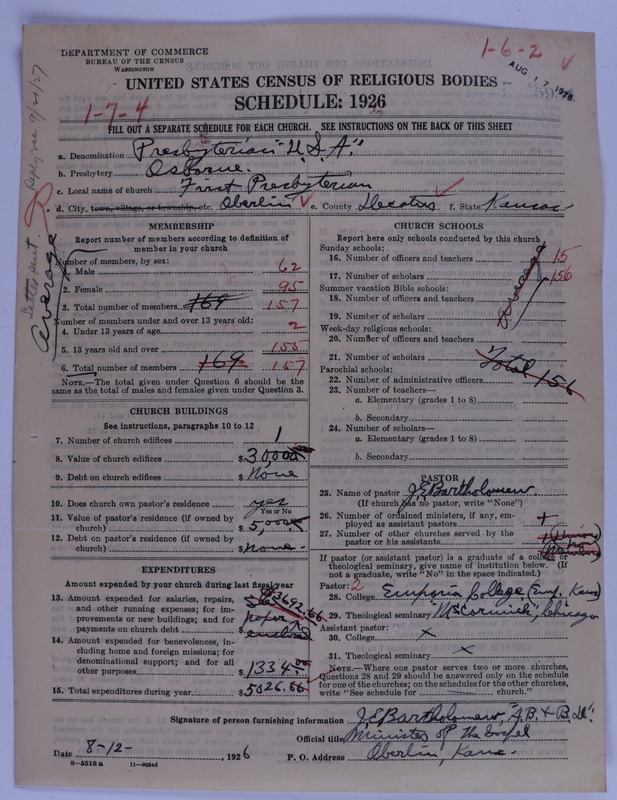 DEPARTMENT OF COMMERCE
BUREAU OF THE CENSUS
WASHINGTON
1-6-2
AUG 17 1926
UNITED STATES CENSUS OF RELIGIOUS BODIES
SCHEDULE: 1926
1-7-4
FILL OUT A SEPARATE SCHEDULE FOR EACH CHURCH. SEE INSTRUCTIONS ON THE BACK OF THIS SHEET
a. Denomination Presbyterian "U.S.A."
b. Presbytery Osborne.
c. Local name of church First Presbyterian
d. City, town, village, or township, etc. Oberlin e. County Decatur f. State Kansas
Letter sent.
Average
MEMBERSHIP
Report number of members according to definition of member in your church
Number of members, by sex:
1. Male 62
2. Female 95
3. Total number of members 169 157
Number of members under and over 13 years old:
4. Under 13 years of age 2
5. 13 years old and over 155
6. Total number of members 169 157
NOTE.—The total given under Question 6 should be the same as the total of males and females given under Question 3.
CHURCH BUILDINGS
See instructions, paragraphs 10 to 12
7. Number of church edifices 1
8. Value of church edifices $30,000
9. Debt on church edifices $None
10. Does church own pastor's residence yes
Yes or No
11. Value of pastor's residence (if owned by church) $5,000
12. Debt on pastor's residence (if owned by church) $None-
EXPENDITURES
Amount expended by your church during last fiscal year
13. Amount expended for salaries, repairs, and other running expenses; for improvements or new buildings; and for payments on church debt $3692.66
14. Amount expended for benevolences, including home and foreign missions; for denominational support; and for all other purposes $1334.00
15. Total expenditures during year $5026.66
CHURCH SCHOOLS
Report here only schools conducted by this church
Sunday schools:
16. Number of officers and teachers 15
17. Number of scholars 156
Average
Summer vacation Bible schools:
18. Number of officers and teachers
19. Number of scholars
Week-day religious schools:
20. Number of officers and teachers
21. Number of scholars
Total 156
Parochial schools:
22. Number of administrative officers
23. Number of teachers—
a. Elementary (grades 1 to 8)
b. Secondary
24. Number of scholars—
a. Elementary (grades 1 to 8)
b. Secondary
PASTOR
25. Name of pastor J.E. Bartholomew.
(If church has no pastor, write "None")
26. Number of ordained ministers, if any, employed as assistant pastors
27. Number of other churches served by the pastor or his assistants
If pastor (or assistant pastor) is a graduate of a college or theological seminary, give name of institution below. (If not a graduate, write "No" in the space indicated.)
Pastor: 2
28. College Emporia College, (Emp. Kans)
29. Theological seminary "McCormick", Chicago
Assistant pastor:
30. College x
31. Theological seminary x
NOTE.—Where one pastor serves two or more churches, Questions 28 and 29 should be answered only on the schedule for one of the churches; on the schedules for the other churches, write "See schedule for church."
Signature of person furnishing information J.E. Bartholomew, "A.B. & B.D."
Official title Minister of the Gospel
Date 8-12-, 1926 P. O. Address Oberlin, Kans.
8-5518 a